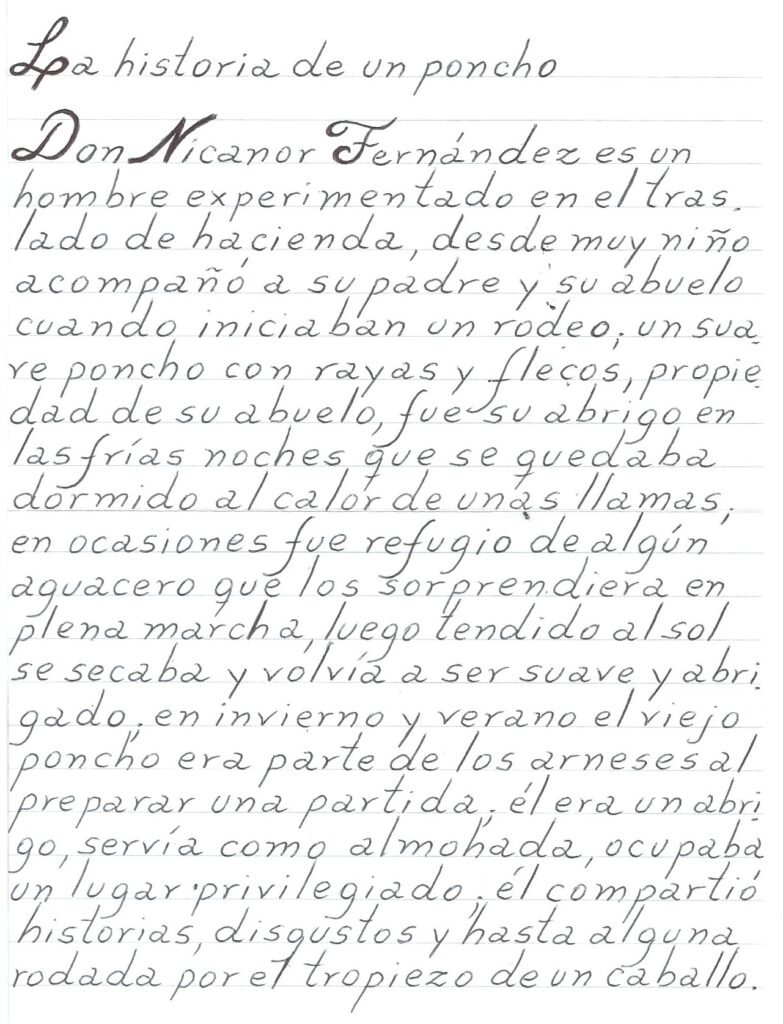 La historia de un poncho
Don Nicanor Fernández es un
hombre experimentado en el tras.
lado de hacienda, desde muy niño
acompañó a su padre y su abuelo
cuando iniciaban un rodeo; un sua-
ve poncho con rayas y flecos, propie-
dad de su abuelo, fue su abrigo en
las frías noches que se quedaba
dormido al calor de unas llamas;
en ocasiones fue refugio de algún
aguacero que los sorprendiera en
plena marcha, luego tendido al sol
se secaba y volvía a ser suave y abri-
gado; en invierno y verano el viejo
poncho era parte de los arneses al
preparar una partida; él era un abri-
go, servía como almohada, ocupaba
un lugar privilegiado; él compartió
historias, disgustos y hasta alguna
rodada por el tropiezo de un caballo.